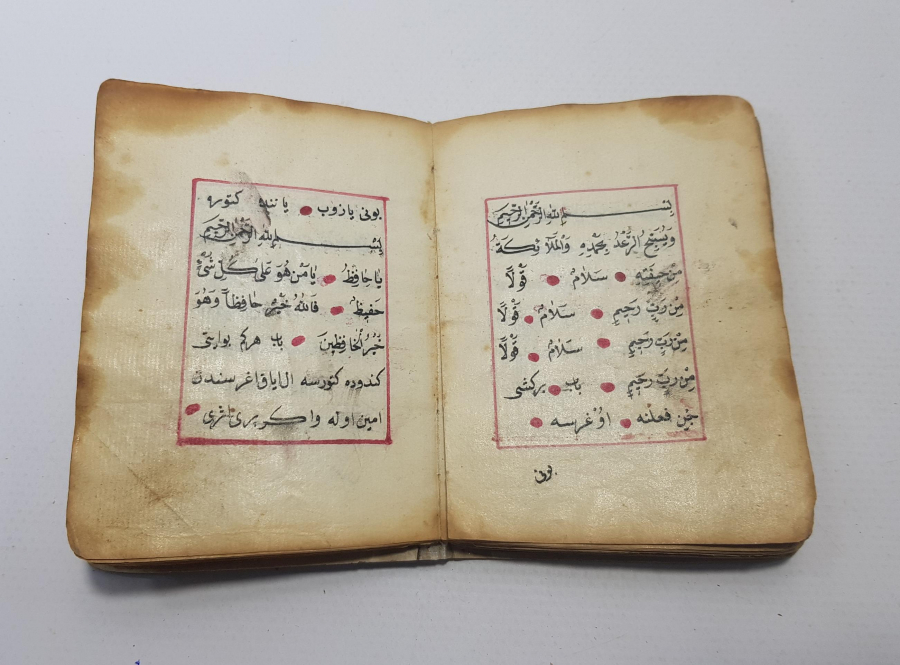 بِسْمِ اللهِ الرَّحْمٰنِ الرَّحِيمِ
وَيُسَبِّحُ الرَّعْدُ بِحَمْدِهِ وَالْمَلَائِكَةُ
مِنْ خِيفَتِهِ سَلَامٌ قَوْلًا
مِنْ رَبٍّ رَحِيمٍ سَلَامٌ قَوْلًا
مِنْ رَبٍّ رَحِيمٍ سَلَامٌ قَوْلًا
مِنْ رَبٍّ رَحِيمٍ باب بركشى
جين فعلنه اوغرسه
بونى
بونى يازوب ياننده كتوره
بِسْمِ اللهِ الرَّحْمٰنِ الرَّحِيمِ
يَا حَافِظُ يَا مَنْ هُوَ عَلَى كُلِّ شَيْءٍ
حَفِيظٌ فَاللهُ خَيْرٌ حَافِظًا وَهُوَ
خَيْرُ الْحَافِظِينَ باب هركم بوايتى
كندوده كتورسه ال اياق اغرسندن
امين اوله واكر پرى